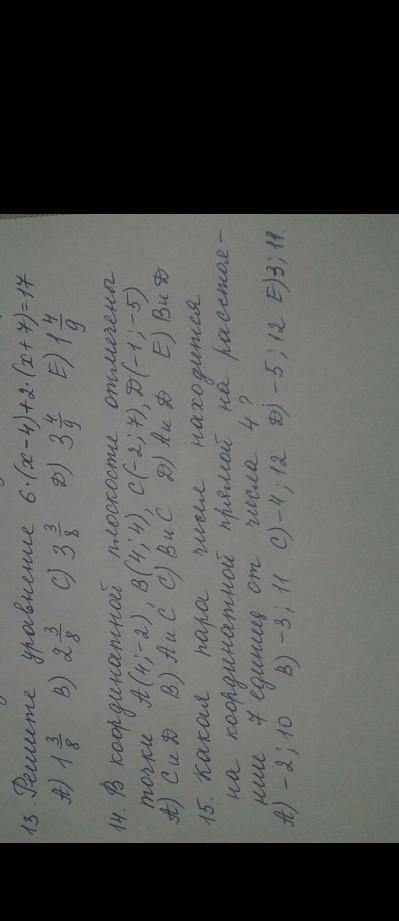 13. Решите уравнение 6·(x-4)+2·(x+7)=17
A) 1 3/8 B) 2 3/8 C) 3 3/8 D) 3 4/9 E) 1 4/9
14. В координатной плоскости отмечены
точки A(4;-2), B(4;4), C(-2;7), D(-1;-5)
A) C и D B) A и C C) B и C D) A и D E) B и D
15. Какая пара чисел находится
на координатной прямой на расстоя-
нии 7 единиц от числа 4?
A) -2; 10 B) -3; 11 C) -4; 12 D) -5; 12 E) 3; 11.